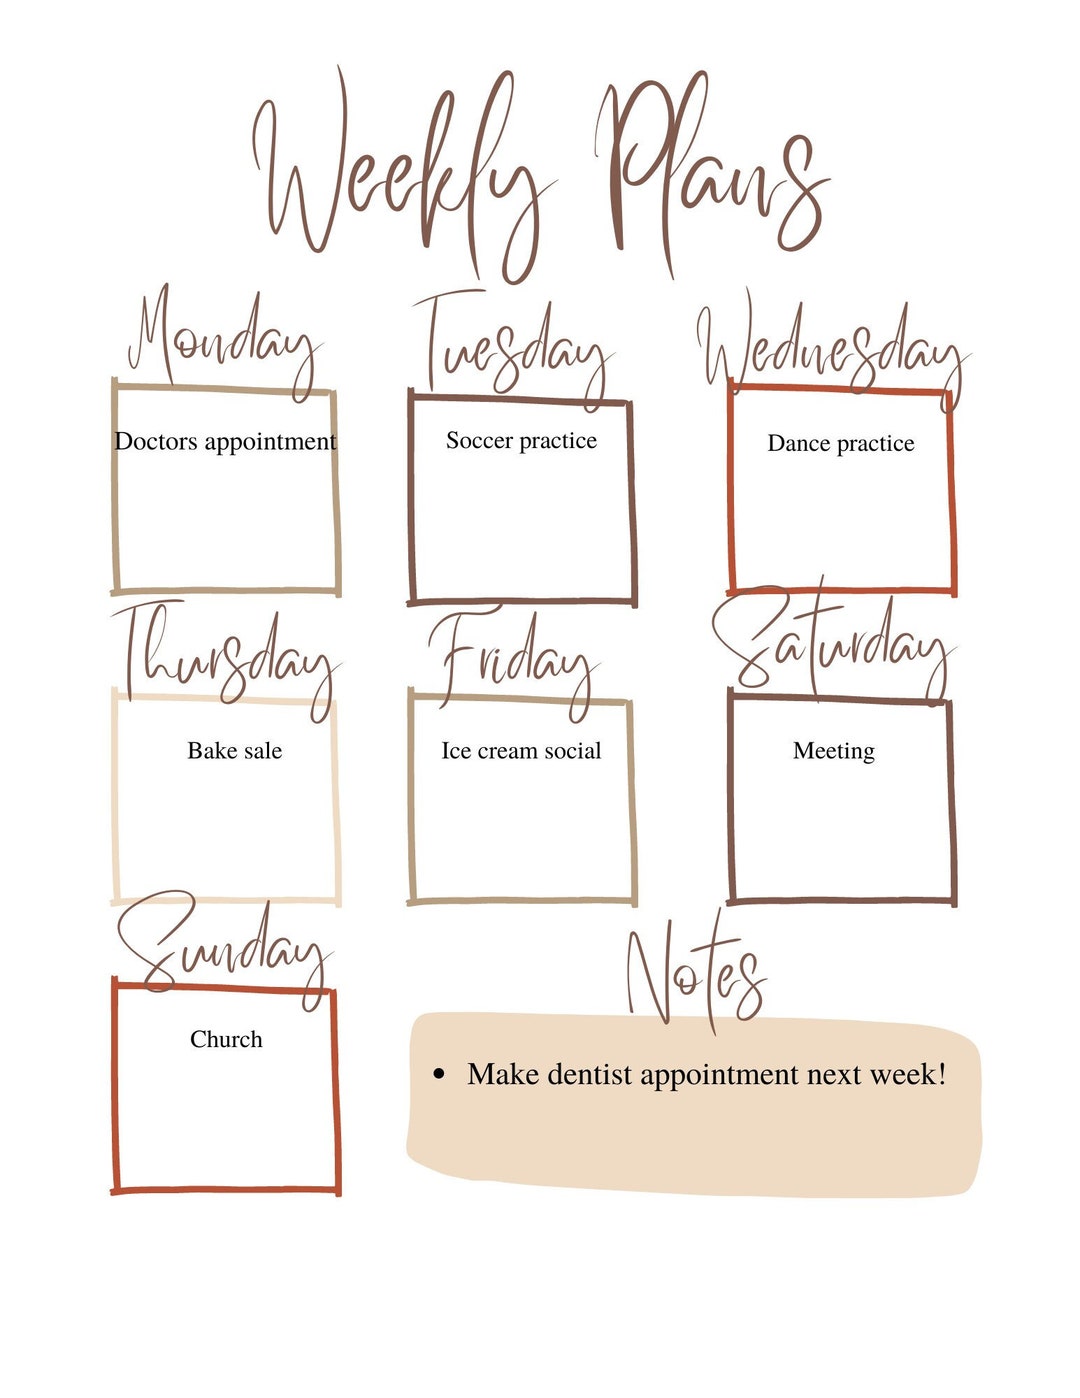 Weekly Plans
Monday
Tuesday
Wednesday
Doctors appointment
Soccer practice
Dance practice
Thursday
Friday
Saturday
Bake sale
Ice cream social
Meeting
Sunday
Church
Notes
• Make dentist appointment next week!